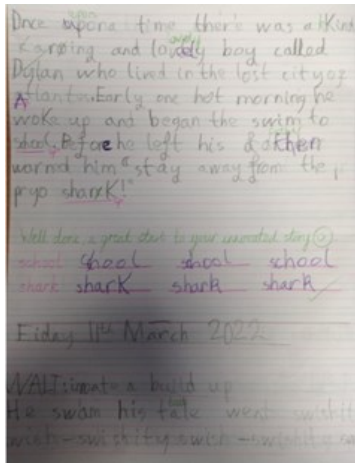 Once upon a time there's was a Kind
Karging and lovely boy called
Dylan who lived in the lost city oz
Atlantu. Early one hot morning he
woke up and began the swim to
shool. Before he left his
worned him "stay away from the
pryo sharK!"
Well done, a great start to your innovated story
school shool shool school
shark sharK shark shark
Friday 11th March 2022
WALT: imate a build up
He swam his tale went swishit
wish-swishity swish-swishit